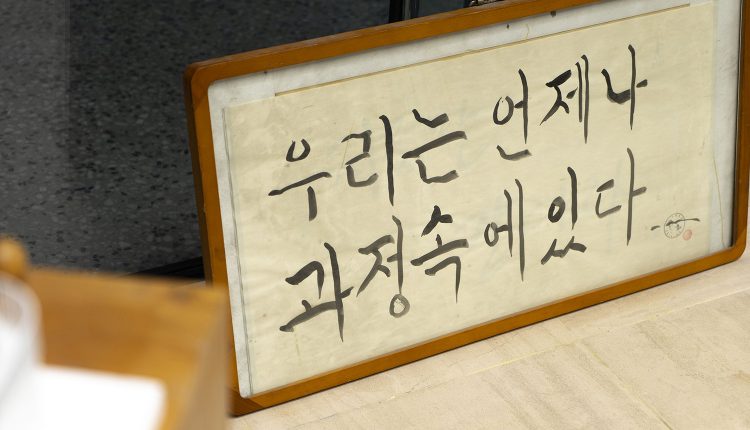 우리는 언제나
과정속에있다